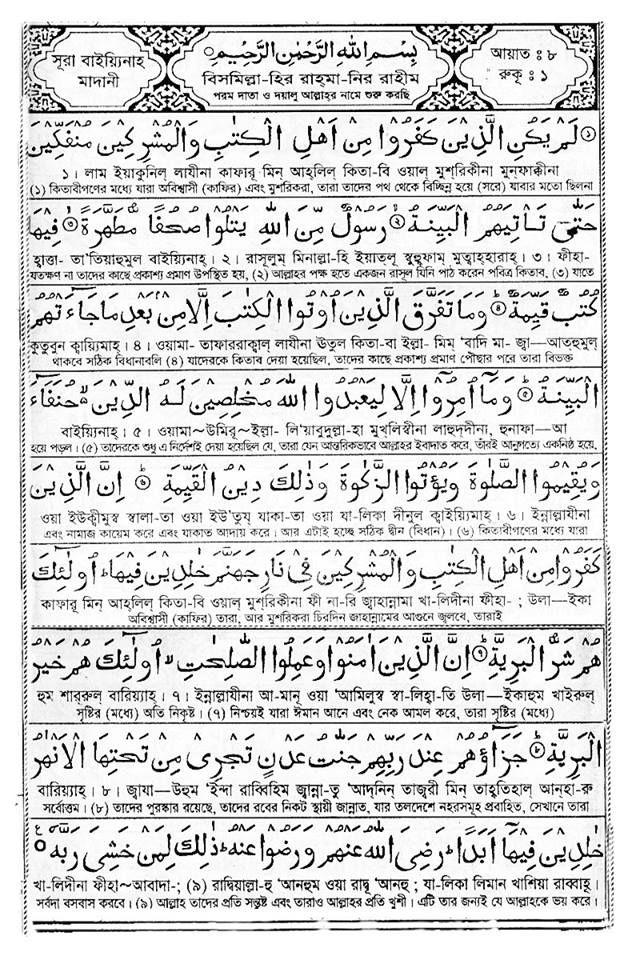 সূরা বাইয়্যিনাহ
মাদানী
بِسْمِ اللهِ الرَّحْمٰنِ الرَّحِيْمِ
বিসমিল্লা-হির রাহ্মা-নির রাহীম
পরম দাতা ও দয়ালু আল্লাহর নামে শুরু করছি
আয়াত : ৮
রুকূ : ১
لَمْ يَكُنِ الَّذِيْنَ كَفَرُوْا مِنْ اَهْلِ الْكِتٰبِ وَالْمُشْرِكِيْنَ مُنْفَكِّيْنَ
১। লাম ইয়াকুনিল্ লাযীনা কাফারূ মিন্ আহ্‌লিল্ কিতা-বি ওয়াল্ মুশ্‌রিকীনা মুন্‌ফাক্কীনা
(১) কিতাবীগণের মধ্যে যারা অবিশ্বাসী (কাফির) এবং মুশরিকরা, তারা তাদের পথ থেকে বিচ্ছিন্ন হয়ে (সরে) যাবার মতো ছিলনা
حَتّٰى تَاْتِيَهُمُ الْبَيِّنَةُ ② رَسُوْلٌ مِّنَ اللهِ يَتْلُوْا صُحُفًا مُّطَهَّرَةً ③ فِيْهَا
হাত্তা- তা'তিয়াহুমুল বাইয়্যিনাহ্। ২। রাসূলুম্ মিনাল্লা-হি ইয়াত্‌লূ ছুহুফাম্ মুত্বাহ্‌হারাহ্। ৩। ফীহা-
যতক্ষণ না তাদের কাছে প্রকাশ্য প্রমাণ উপস্থিত হয়, (২) আল্লাহর পক্ষ হতে একজন রাসূল যিনি পাঠ করেন পবিত্র কিতাব, (৩) যাতে
كُتُبٌ قَيِّمَةٌ ④ وَمَا تَفَرَّقَ الَّذِيْنَ اُوْتُوا الْكِتٰبَ اِلَّا مِنْ بَعْدِ مَا جَآءَتْهُمُ
কুতুবুন ক্বায়্যিমাহ্। ৪। ওয়ামা- তাফাররাক্বাল্ লাযীনা ঊতুল কিতা-বা ইল্লা- মিম্ 'বাদি মা- জ্বা—আত্‌হুমুল্
থাকবে সঠিক বিধানাবলি (৪) যাদেরকে কিতাব দেয়া হয়েছিল, তাদের কাছে প্রকাশ্য প্রমাণ পৌছার পরে তারা বিভক্ত
الْبَيِّنَةُ ⑤ وَمَآ اُمِرُوْٓا اِلَّا لِيَعْبُدُوا اللهَ مُخْلِصِيْنَ لَهُ الدِّيْنَ حُنَفَآءَ
বাইয়্যিনাহ্। ৫। ওয়ামা~উমিরূ~ইল্লা- লি'য়াবুদুল্লা-হা মুখ্‌লিস্বীনা লাহুদ্‌দীনা, হুনাফা—আ
হয়ে পড়ল। (৫) তাদেরকে শুধু এ নির্দেশই দেয়া হয়েছিল যে, তারা যেন আন্তরিকভাবে আল্লাহর ইবাদাত করে, তাঁরই আনুগত্যে একনিষ্ঠ হয়ে,
وَيُقِيْمُوا الصَّلٰوةَ وَيُؤْتُوا الزَّكٰوةَ وَذٰلِكَ دِيْنُ الْقَيِّمَةِ ⑥ اِنَّ الَّذِيْنَ
ওয়া ইউক্বীমুস্ব স্বালা-তা ওয়া ইউ'তুয্ যাকা-তা ওয়া যা-লিকা দীনুল ক্বাইয়্যিমাহ্। ৬। ইন্নাল্লাযীনা
এবং নামাজ কায়েম করে এবং যাকাত আদায় করে। আর এটাই হচ্ছে সঠিক দ্বীন (বিধান)। (৬) কিতাবীগণের মধ্যে যারা
كَفَرُوْا مِنْ اَهْلِ الْكِتٰبِ وَالْمُشْرِكِيْنَ فِيْ نَارِ جَهَنَّمَ خٰلِدِيْنَ فِيْهَا اُولٰٓئِكَ
কাফারূ মিন্ আহ্‌লিল্ কিতা-বি ওয়াল্ মুশ্‌রিকীনা ফী না-রি জ্বাহান্নামা খা-লিদীনা ফীহা- ; উলা—ইকা
অবিশ্বাসী (কাফির) তারা, আর মুশরিকরা চিরদিন জাহান্নামের আগুনে জ্বলবে, তারাই
هُمْ شَرُّ الْبَرِيَّةِ ⑦ اِنَّ الَّذِيْنَ اٰمَنُوْا وَعَمِلُوا الصّٰلِحٰتِ اُولٰٓئِكَ هُمْ خَيْرُ
হুম শার্‌রুল্ বারিয়্যাহ্। ৭। ইন্নাল্লাযীনা আ-মানূ ওয়া 'আমিলুস্ব স্বা-লিহা-তি উলা—ইকাহুম খাইরুল্
সৃষ্টির (মধ্যে) অতি নিকৃষ্ট। (৭) নিশ্চয়ই যারা ঈমান আনে এবং নেক আমল করে, তারা সৃষ্টির (মধ্যে)
الْبَرِيَّةِ ⑧ جَزَآؤُهُمْ عِنْدَ رَبِّهِمْ جَنّٰتُ عَدْنٍ تَجْرِيْ مِنْ تَحْتِهَا الْاَنْهٰرُ
বারিয়্যাহ্। ৮। জ্বাযা—উহুম 'ইন্দা রাব্বিহিম জ্বান্না-তু 'আদ্‌নিন্ তাজ্‌রী মিন্ তাহ্‌তিহাল্ আন্‌হা-রু
সর্বোত্তম। (৮) তাদের পুরষ্কার রয়েছে, তাদের রবের নিকট স্থায়ী জান্নাত, যার তলদেশে নহরসমূহ প্রবাহিত, সেখানে তারা
خٰلِدِيْنَ فِيْهَآ اَبَدًا رَضِيَ اللهُ عَنْهُمْ وَرَضُوْا عَنْهُ ذٰلِكَ لِمَنْ خَشِيَ رَبَّهٗ
খা-লিদীনা ফীহা~আবাদা-; (৯) রাদ্বিয়াল্লা-হু 'আনহুম ওয়া রাদ্বূ 'আনহু ; যা-লিকা লিমান খাশিয়া রাব্বাহূ।
সর্বদা বসবাস করবে। (৯) আল্লাহ তাদের প্রতি সন্তুষ্ট এবং তারাও আল্লাহর প্রতি খুশী। এটি তার জন্যই যে আল্লাহকে ভয় করে।